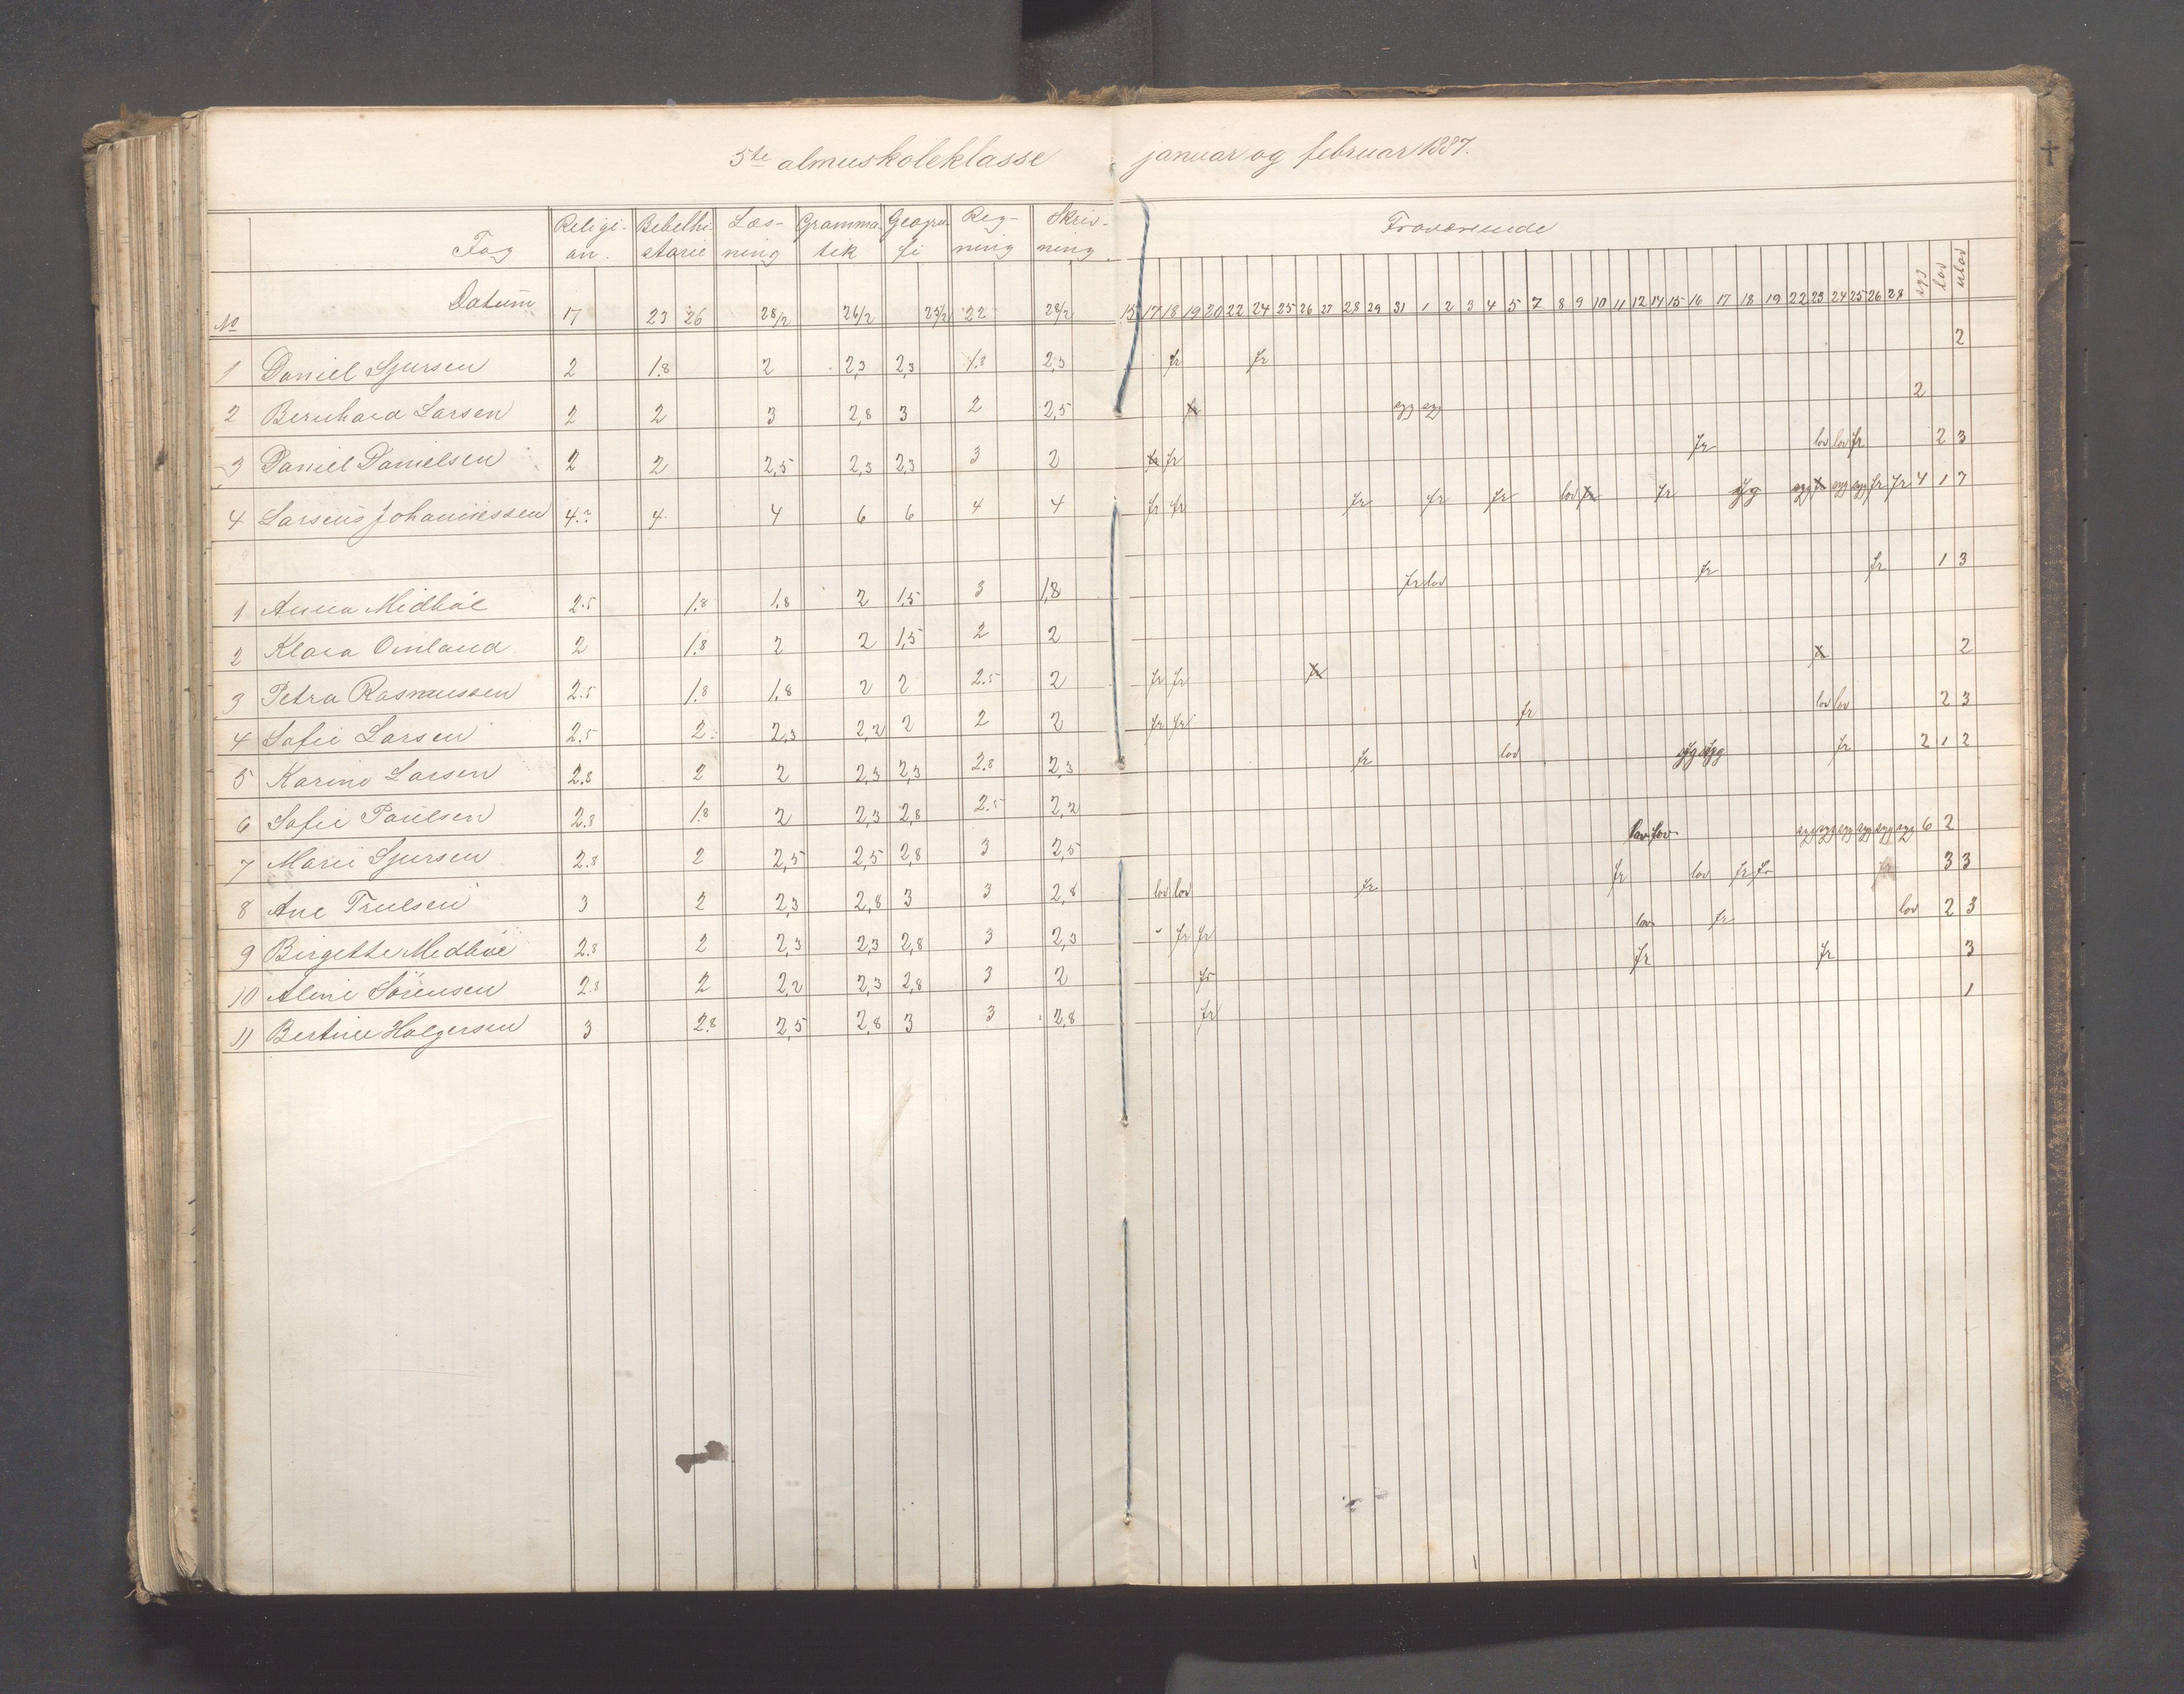 5te almuskoleklasse januar og februar 1887.
Fag Religi- on. Bibelhi- storie Læs- ning Gramma- tik Geogra- fi Reg- ning Skriv- ning Fraværende
No Datum 17 23 26 28/2 26/2 25/2 22 28/2 15 17 18 19 20 22 24 25 26 27 28 29 31 1 2 3 4 5 7 8 9 10 11 12 14 15 16 17 18 19 22 23 24 25 26 28 syg lov ulov
1 Daniel Sjursen 2 1.8 2 2,3 2,3 1.8 2,3 fr fr 2
2 Bernhard Larsen 2 2 3 2,8 3 2 2,5 syg syg 2
3 Daniel Danielsen 2 2 2,5 2,3 2,3 3 2 fr fr fr lov lov fr 2 3
4 Larseus Johannessen 4.? 4 4 6 6 4 4 fr fr fr fr fr lov fr fr syg syg fr syg syg fr fr 4 1 7
1 Anna Midbøe 2.5 1.8 1.8 2 1,5 3 1,8 fr lov fr fr 1 3
2 Klara Omland 2 1.8 2 2 1,5 2 2
3 Petra Rasmussen 2.5 1.8 1.8 2 2 2.5 2 fr fr 2
4 Sofie Larsen 2.5 2 2,3 2,2 2 2 2 fr fr fr lov lov 2 3
5 Karine Larsen 2.8 2 2 2,3 2,3 2.8 2,3 fr lov syg syg fr 2 1 2
6 Sofie Paulsen 2.8 1.8 2 2,3 2,8 2.5 2,2
7 Marie Sjursen 2.8 2 2,5 2,5 2,8 3 2,5 lov lov syg syg syg syg syg syg 6 2
8 Ane Truelsen 3 2 2,3 2,8 3 3 2,8 lov lov fr fr lov fr fr fr 3 3
9 Birgette Medbøe 2.8 2 2,3 2,3 2,8 3 2,3 fr fr lov fr lov 2 3
10 Aline Sörensen 2.8 2 2,2 2,3 2,8 3 2 fr fr fr 3
11 Bertine Holgersen 3 2.8 2,5 2,8 3 3 2,8 fr 1